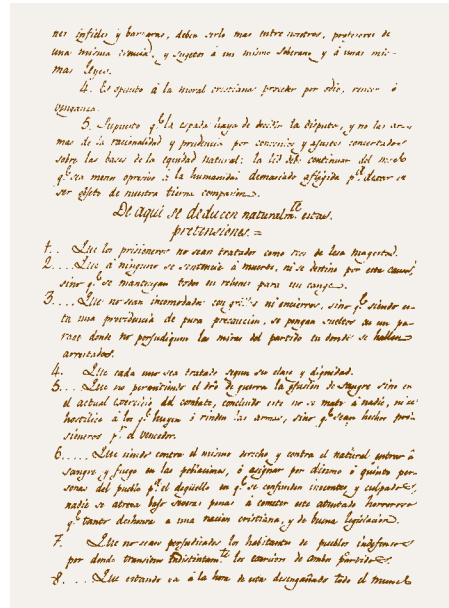 nes infieles y barvaras, deben serlo mas entre nosotros, profesores de
una misma creencia, y sugetos á un mismo soberano y á unas mis-
mas Leyes.
4. Es opuesto á la moral cristiana proceder por odio, rencor ó
venganza.
5. Supuesto q.e la espada haya de decidir la disputa, y no las ar-
mas de la racionalidad y prudencia por convenios y ajustes concertados
sobre las bases de la equidad natural: la lid debe continuar del modo
q.e sea menos opresivo á la humanidad demasiado afligida p.a dexar de
ser objeto de nuestra tierna compasion.
De aqui se deducen naturalm.te estas
pretensiones. =
1.. Que los prisioneros no sean tratados como reos de lesa magestad.
2.... Que á ninguno se sentencie á muerte, ni se destine por esta causa,
sino q.e se mantengan todos en rehenes para un cange.
3.... Que no sean incomodados con grillos ni encierros, sino q.e siendo es-
ta una providencia de pura precaucion, se pongan sueltos en un pa-
rage donde no perjudiquen las miras del partido en donde se hallen
arrestados.
4. Que cada uno sea tratado segun su clase y dignidad.
5... Que no permitiendo el dro de guerra la efusion de sangre sino en
el actual exercicio del combate, concluido este no se mate á nadie, ni se
hostilice á los q.e huyen ó rinden las armas, sino q.e sean hechos pri-
sioneros p.r el vencedor.
6.... Que siendo contra el mismo derecho y contra el natural entrar á
sangre, y fuego en las poblaciones, ó asignar por diezmo ó quinto per-
sonas del pueblo p.a el degüello en q.e se confunden inocentes y culpados,
nadie se atreva bajo severas penas á cometer este atentado horroroso
q.e tanto deshonra a una nacion cristiana, y de buena legislacion.
7. Que no sean perjudicados los habitantes de pueblos indefensos
por donde transiten indistintam.te los exercitos de ambos partidos.
8... Que estando ya á la hora de esta desengañado todo el mundo